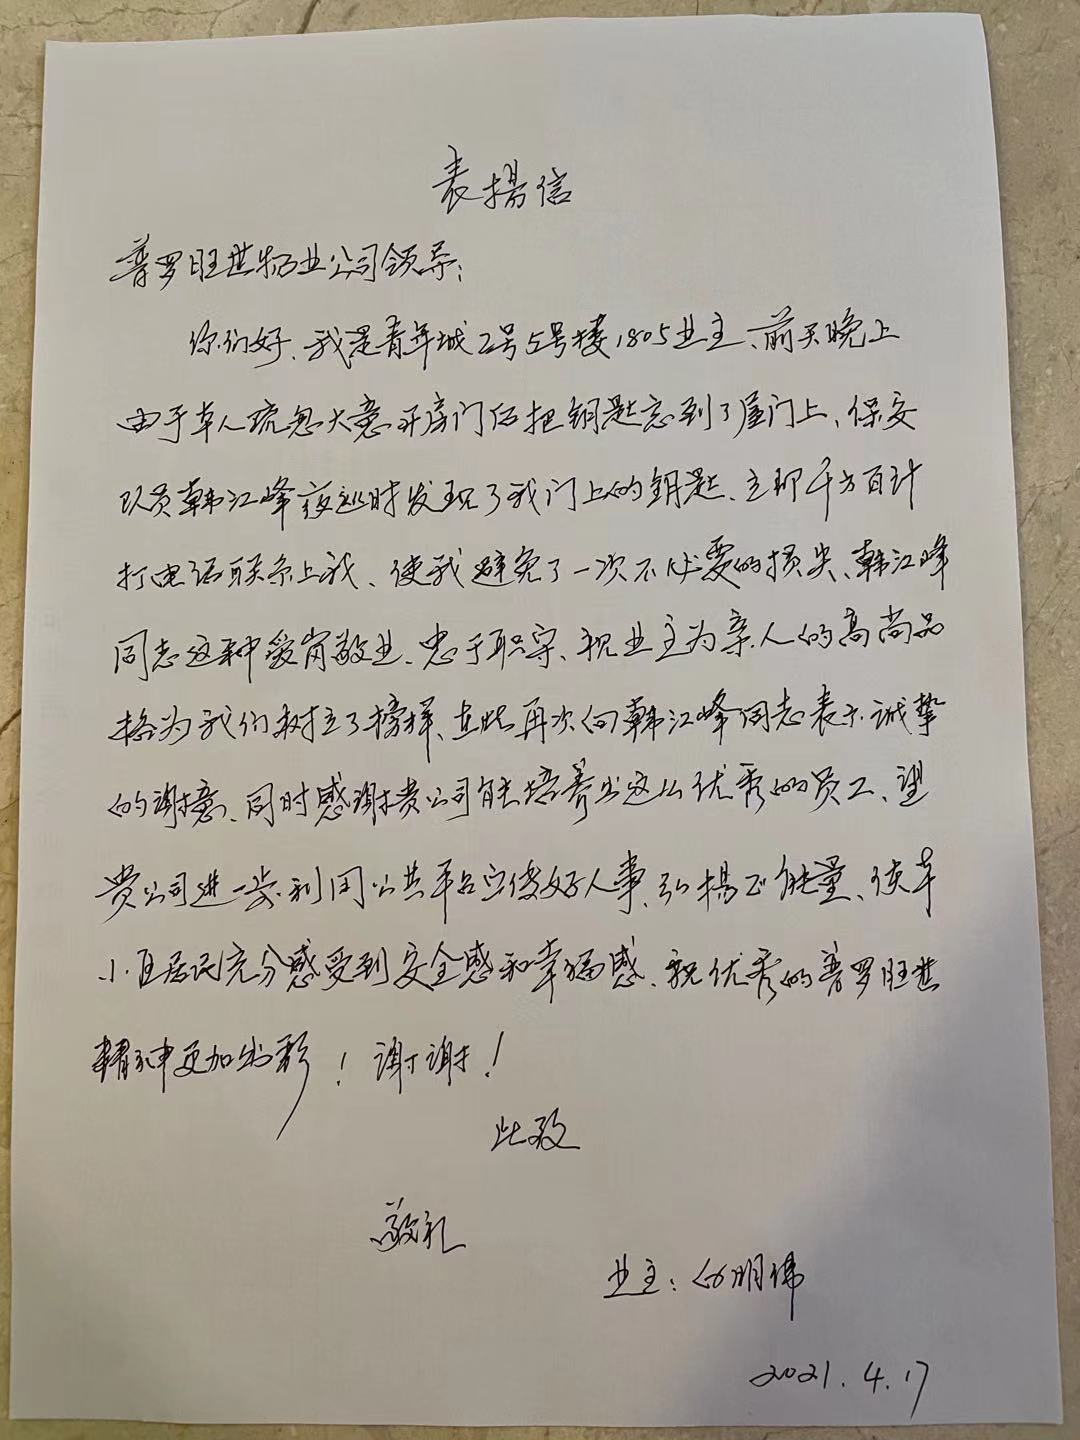 表揚信
普罗旺世物业公司领导:
你们好、我是青年城2号5号楼1805业主、前天晚上
由于本人疏忽大意开房门后把钥匙忘到了屋门上、保安
队员韩江峰夜巡时发现了我门上的钥匙、立即千方百计
打电话联系上我、使我避免了一次不必要的损失、韩江峰
同志这种爱岗敬业、忠于职守、视业主为亲人的高尚品
格为我们树立了榜样、在此再次向韩江峰同志表示诚挚
的谢意、同时感谢贵公司能培养出这么优秀的员工、望
贵公司进一步利用公共平台宣传好人事、弘揚正能量、使本
小区居民充分感受到安全感和幸福感、祝优秀的普罗旺世
精神更加出彩!谢谢!
此致
敬礼
业主:明伟
2021.4.17